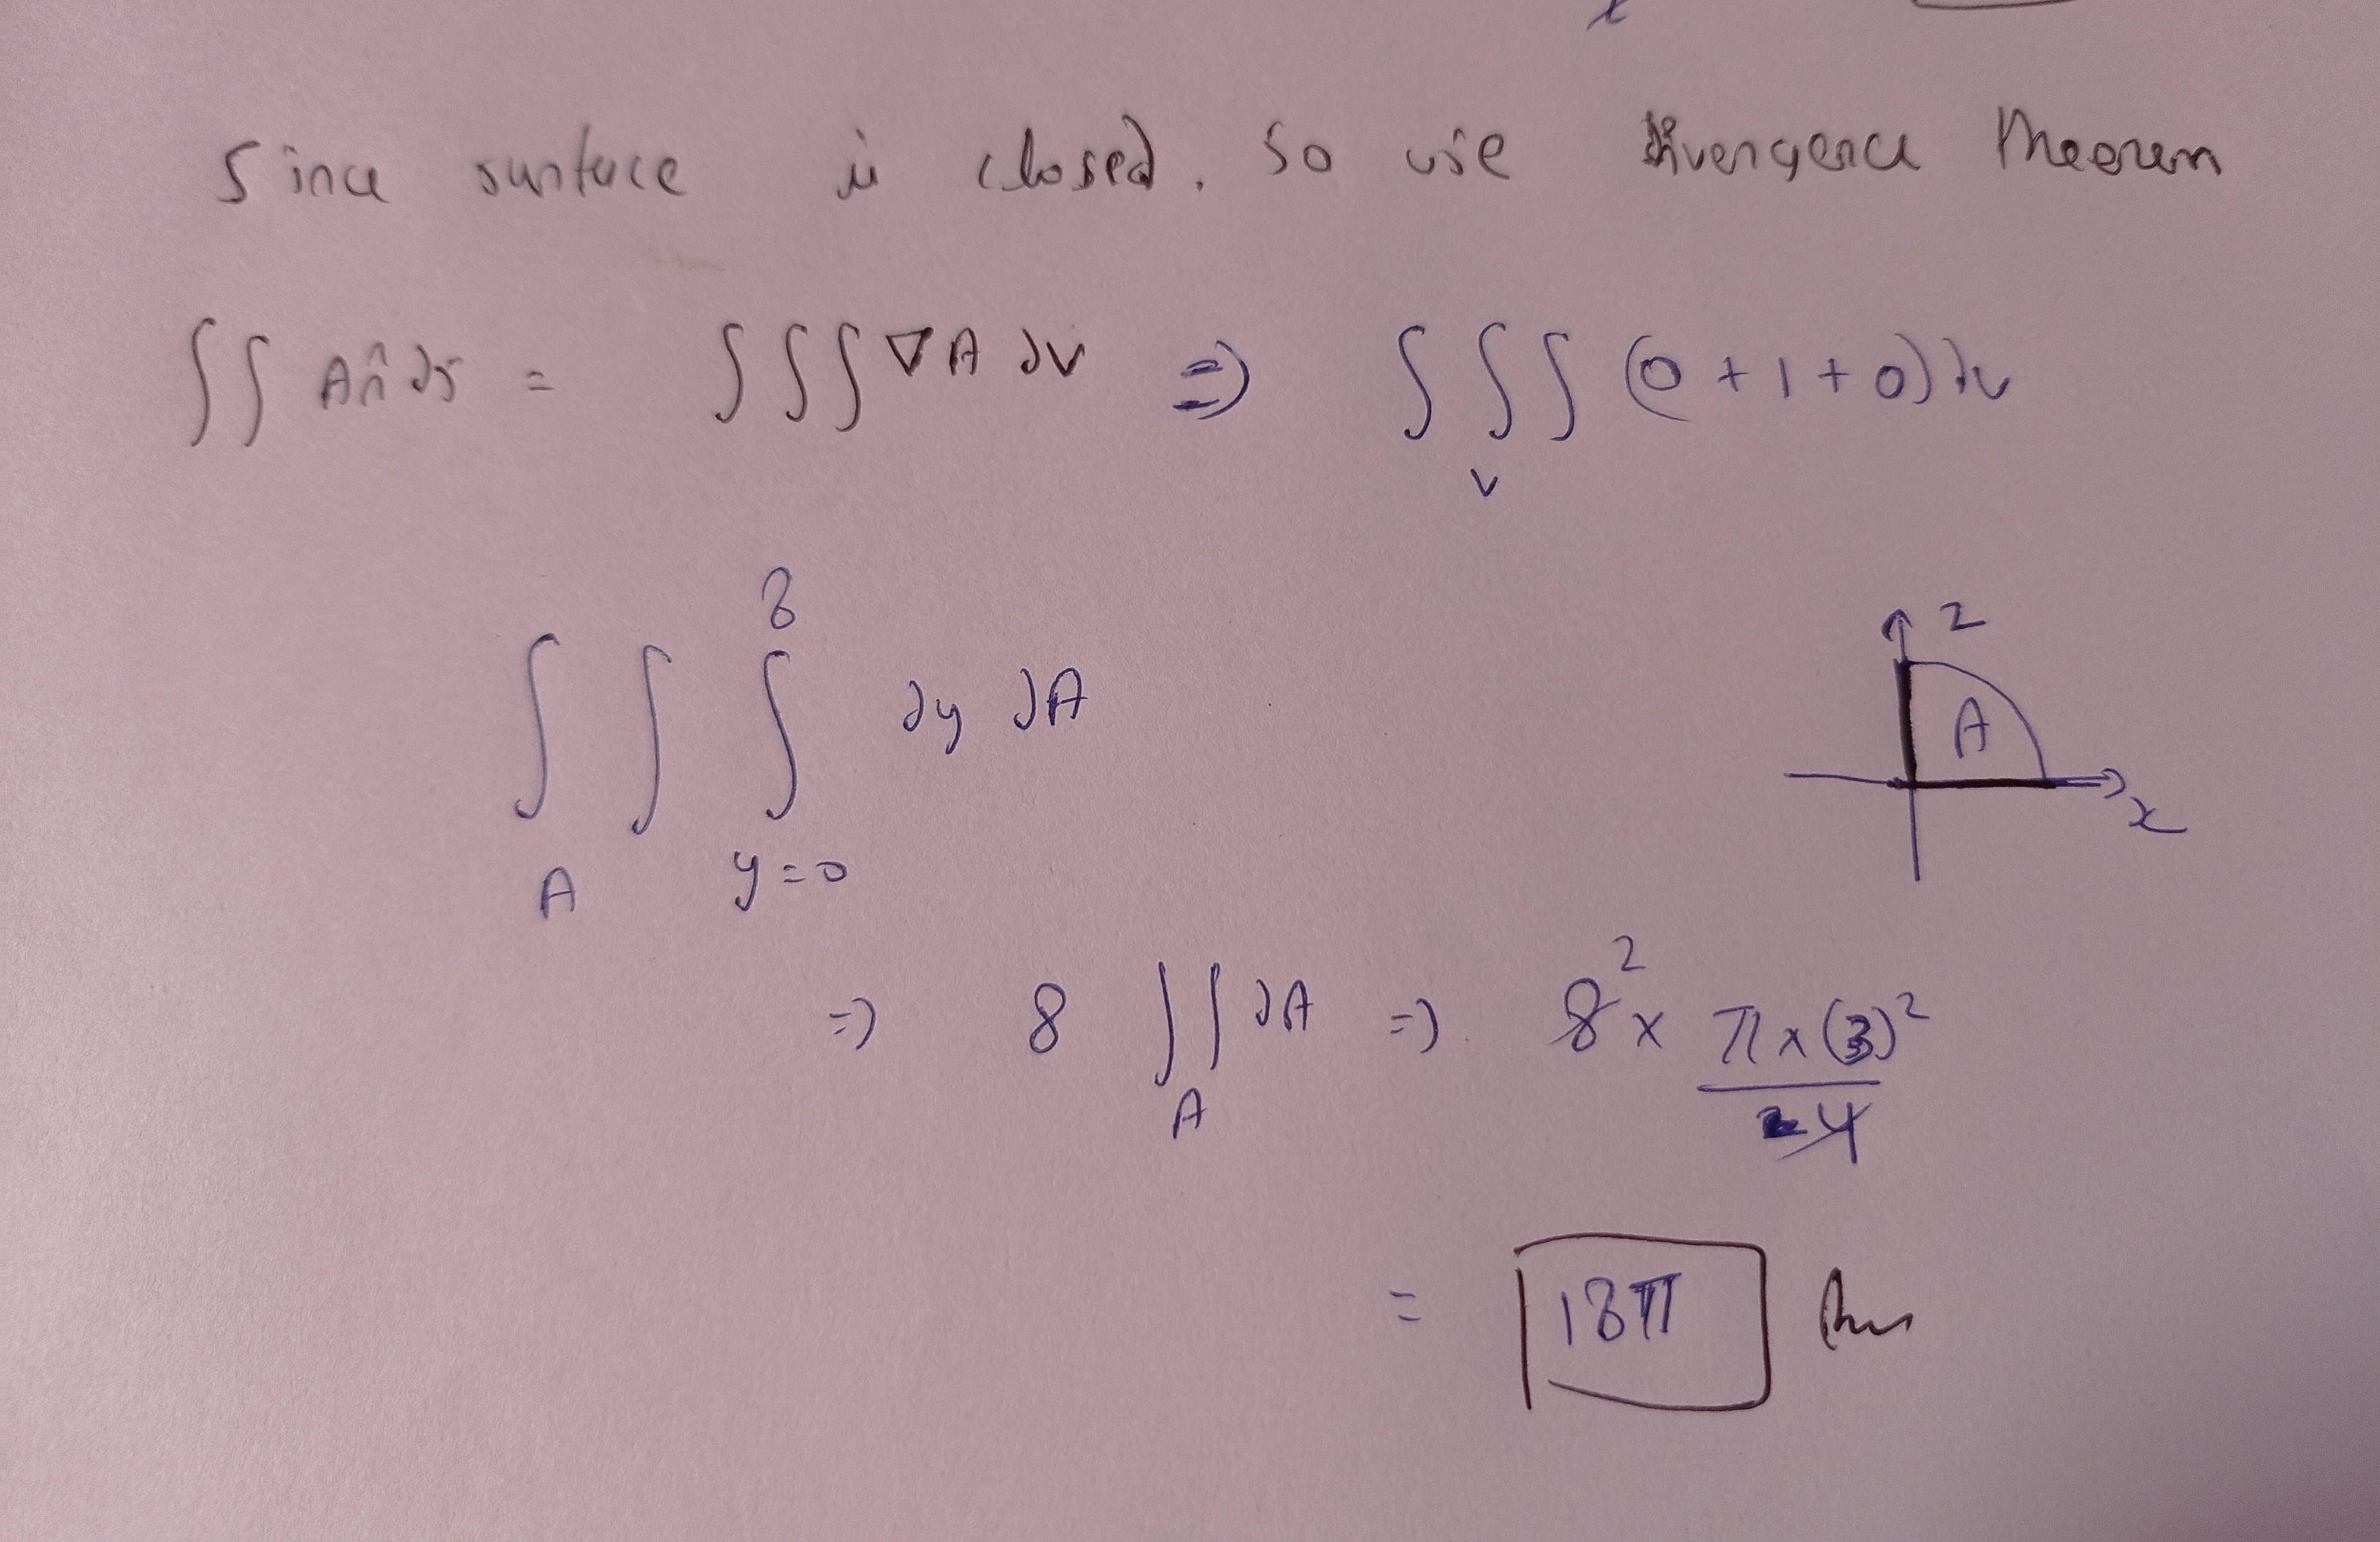 Since surface is closed. So use divergence theorem
∫∫ A n̂ ds = ∫∫∫ ∇A dv ⇒ ∫∫∫_V (0+1+0) dv
∫∫_A ∫_{y=0}^{8} dy dA
z
A
x
⇒ 8 ∫∫_A dA ⇒ 8² × π×(3)² / 4
= 18π Ans